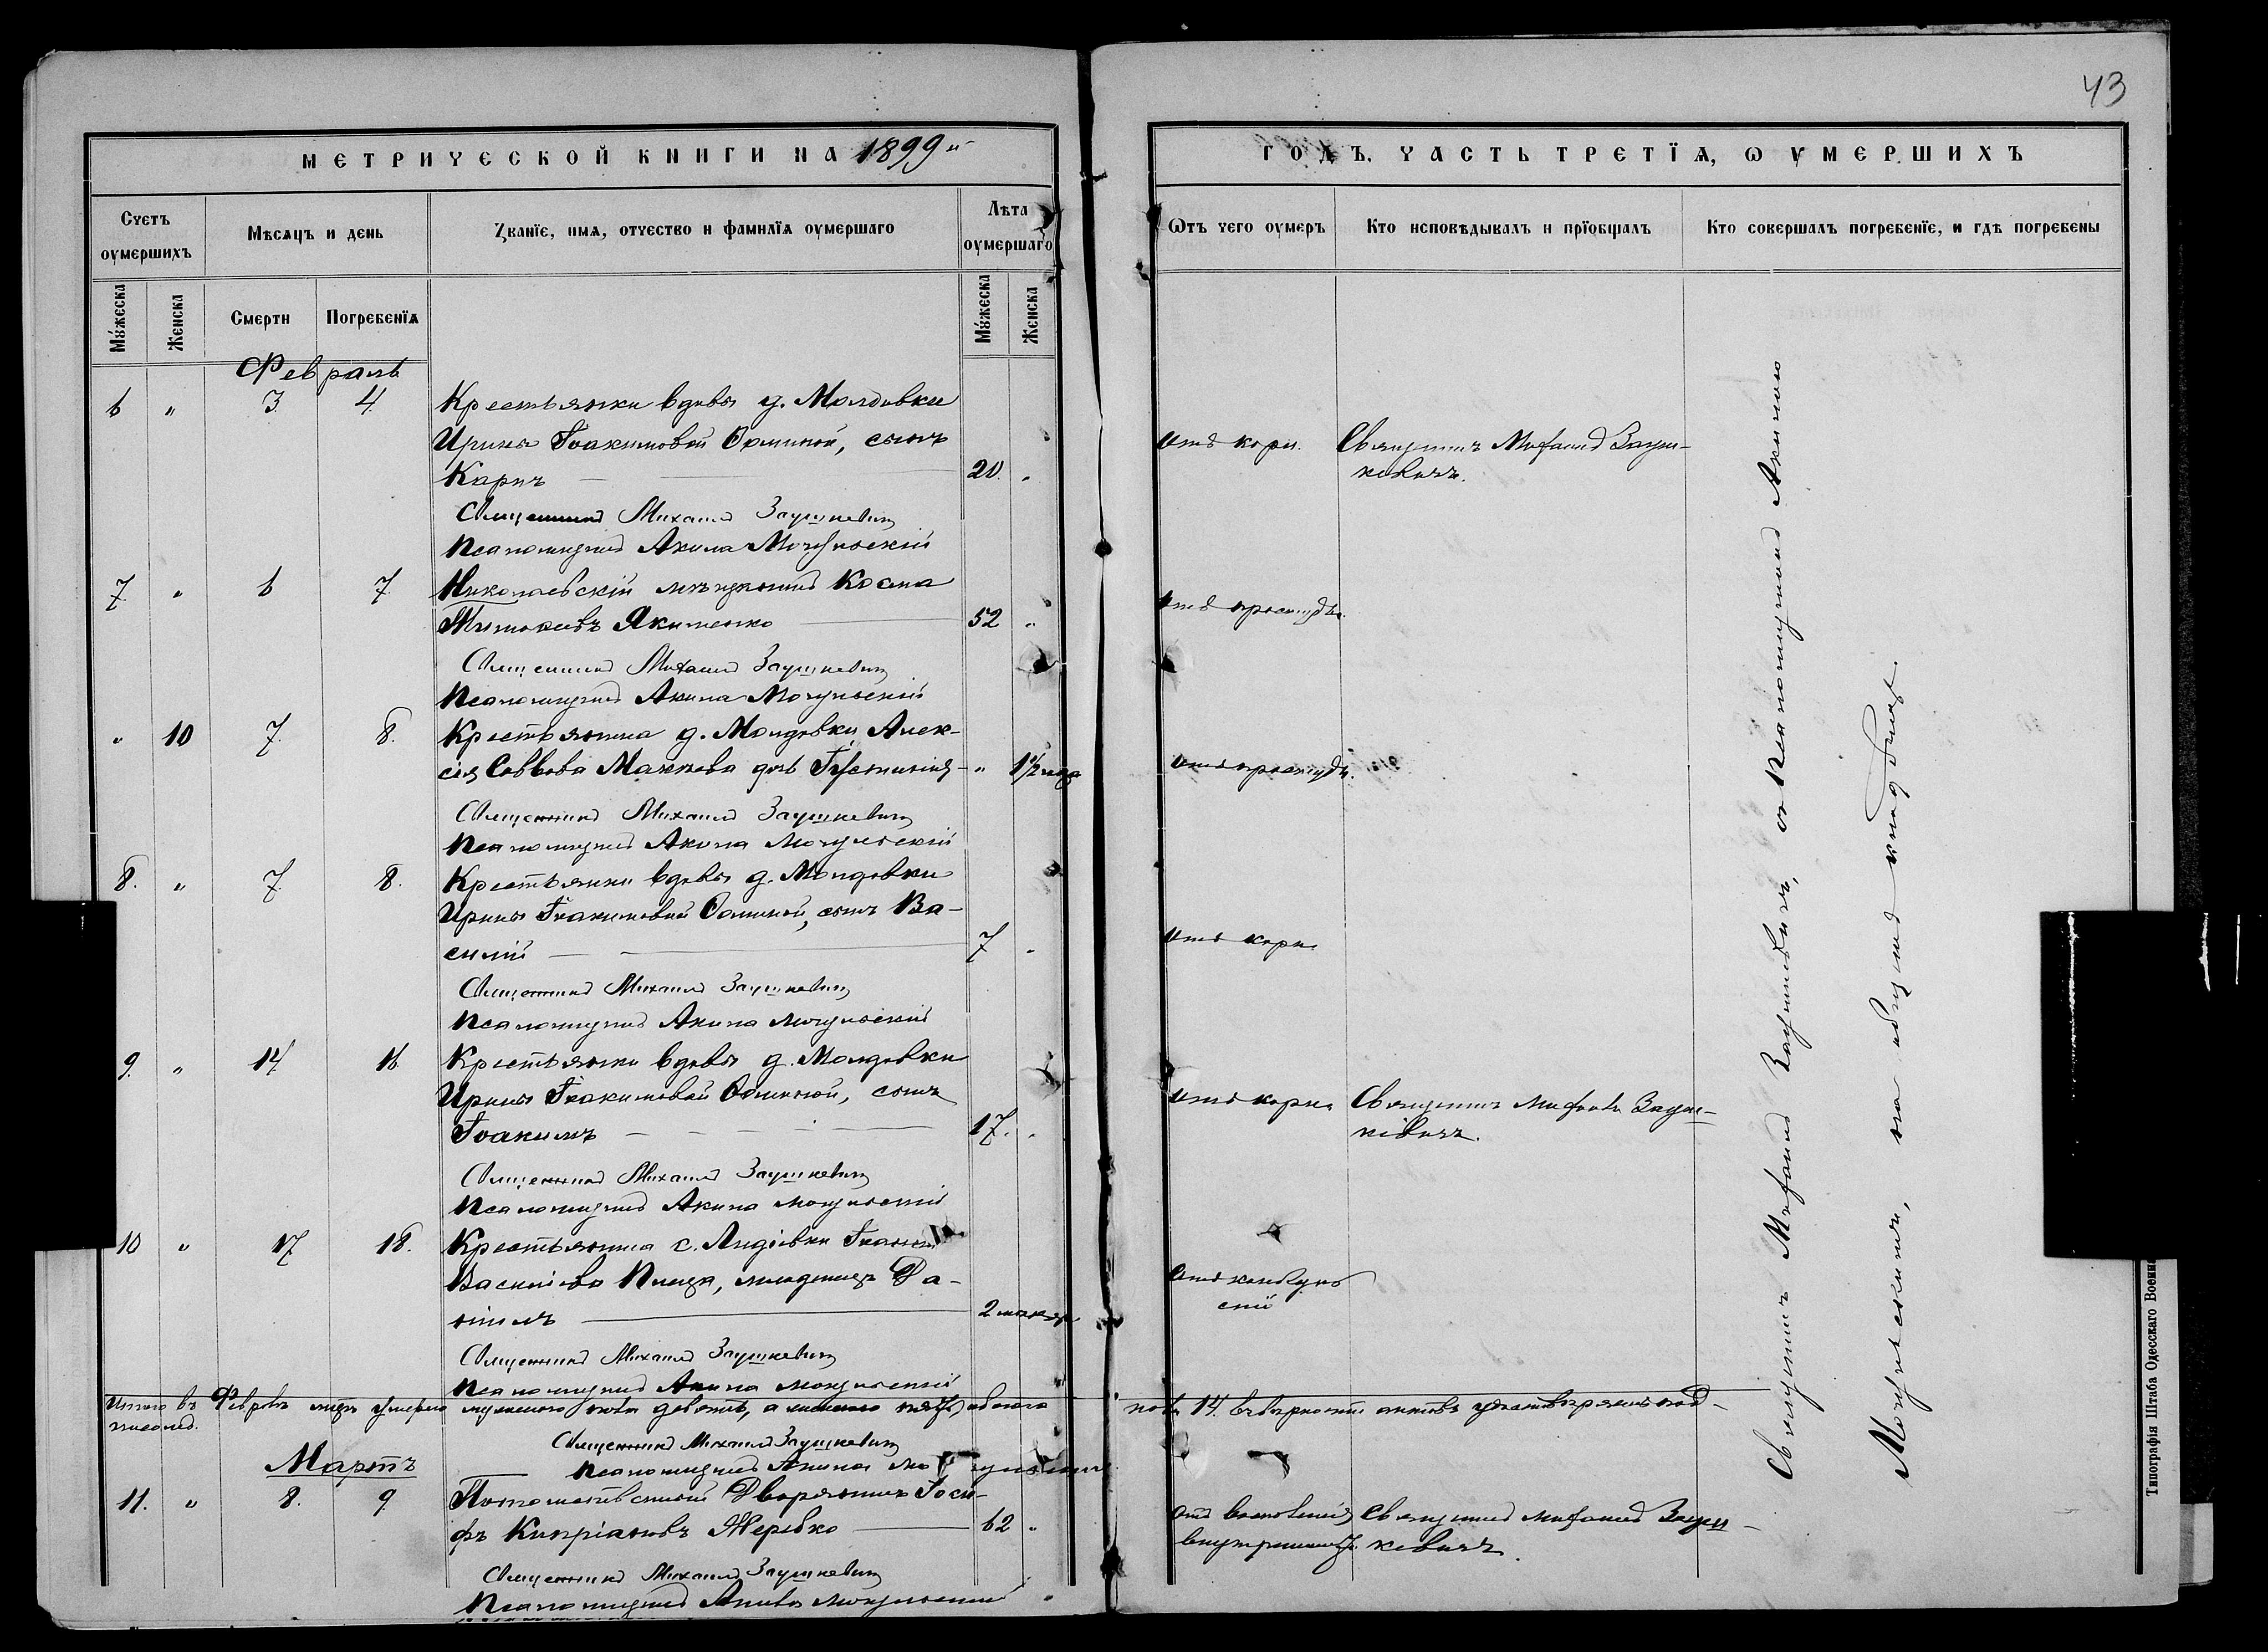 43
МЕТРИЧЕСКОЙ КНИГИ НА 1899й
ГОДЪ, ЧАСТЬ ТРЕТЇѦ, Ѡ ОУМЕРШИХЪ
Счетъ оумершихъ
Мѣсѧцъ и день
Званїе, имѧ, отчество и фамилїѧ оумершаго
Лѣта оумершаго
Ѿтъ чего оумеръ
Кто исповѣдывалъ и прїобщалъ
Кто совершалъ погребенїе, и гдѣ погребены
Мꙋжеска
Женска
Смерти
Погребенїѧ
Мꙋжеска
Женска
Февраль
6 " 3. 4. Крестьянки вдовы д. Молдовки
Ирины Іоакимовой, сынъ
Карпъ 20. "
отъ кори.
Священникъ Михаилъ Зауш-
кевичъ.
Священникъ Михаилъ Заушкевичъ
Псаломщикъ Акила Могульскій
7. " 6 7. Николаевскій мѣщанинъ Косма
Тимофеевъ Якименко 52 "
отъ простуды.
Священникъ Михаилъ Заушкевичъ
Псаломщикъ Акила Могульскій
" 10 7. 8. Крестьянина д. Молдовки Алек-
сія Саввова дочь Іустинія " 1½ года
отъ простуды.
Священникъ Михаилъ Заушкевичъ
Псаломщикъ Акила Могульскій
8. " 7. 8. Крестьянки вдовы д. Молдовки
Ирины Іоакимовой, сынъ Ва-
силій 7 "
отъ кори
Священникъ Михаилъ Заушкевичъ
Псаломщикъ Акила Могульскій
9. " 14 16 Крестьянки вдовы д. Молдовки
Ирины Іоакимовой, сынъ
Іоакимъ 17. "
отъ кори
Священникъ Михаилъ Зауш-
кевичъ.
Священникъ Михаилъ Заушкевичъ
Псаломщикъ Акила Могульскій
10 " 17 18. Крестьянина с. Лидіевки
Василіева, младенецъ Да-
ніилъ 2
отъ конвуль
сій
Священникъ Михаилъ Заушкевичъ
Псаломщикъ Акила Могульскій
Итого въ Февралѣ мѣс. умерло мужеского пола девять, а женского обоего
пола 14. Въ вѣрности актовъ удостовѣряемъ под-
писомъ.
Священникъ Михаилъ Заушкевичъ
Псаломщикъ Акила Могульскій
Мартъ
11. " 8. 9. Потомственный Дворянинъ Іоси-
фъ Кипріановъ Жеребко 62 "
отъ воспаленія
внутренностей
Священникъ Михаилъ Зауш-
кевичъ.
Священникъ Михаилъ Заушкевичъ
Псаломщикъ Акила Могульскій
Священникъ Михаилъ Заушкевичъ, съ псаломщикомъ Акилою
Могульскимъ, на общемъ кладбищѣ.
Типографія Штаба Одесскаго Военн